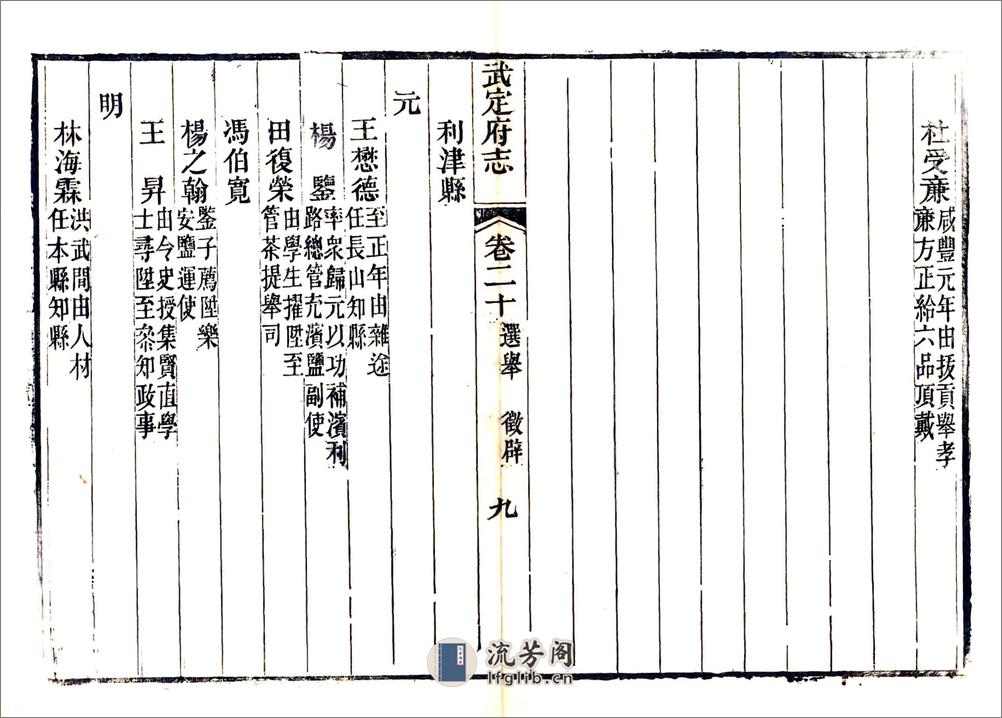 杜受廉咸豐元年由拔貢舉孝
廉方正給六品頂戴
武定府志 卷二十 選舉 徵辟 九
利津縣
元
王懋德至正年由雜途
任長山知縣
楊 鑒率衆歸元以功補濱利
路總管充濱鹽副使
田復榮由學生擢陞至
管茶提舉司
馮伯寬
楊之翰鑒子薦陞樂
安鹽運使
王 昇由令史授集賢直學
士尋陞至叅知政事
明
林海霖洪武間由人材
任本縣知縣
流芳阁
lfglib.cn